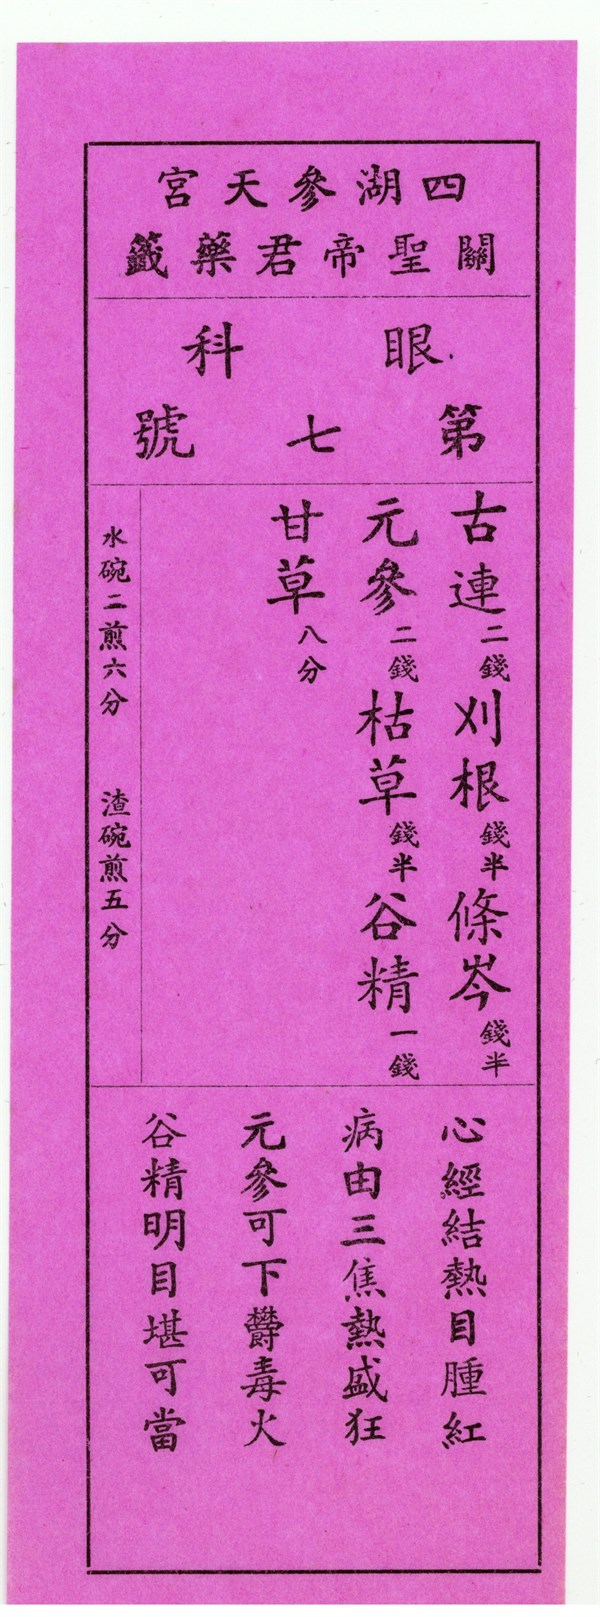 四湖參天宮
關聖帝君藥籤
眼科
第七號
古連二錢 刈根錢半 條岑錢半
元參二錢 枯草錢半 谷精一錢
甘草八分
水碗二煎六分 渣碗煎五分
心經結熱目腫紅
病由三焦熱盛狂
元參可下欝毒火
谷精明目堪可當